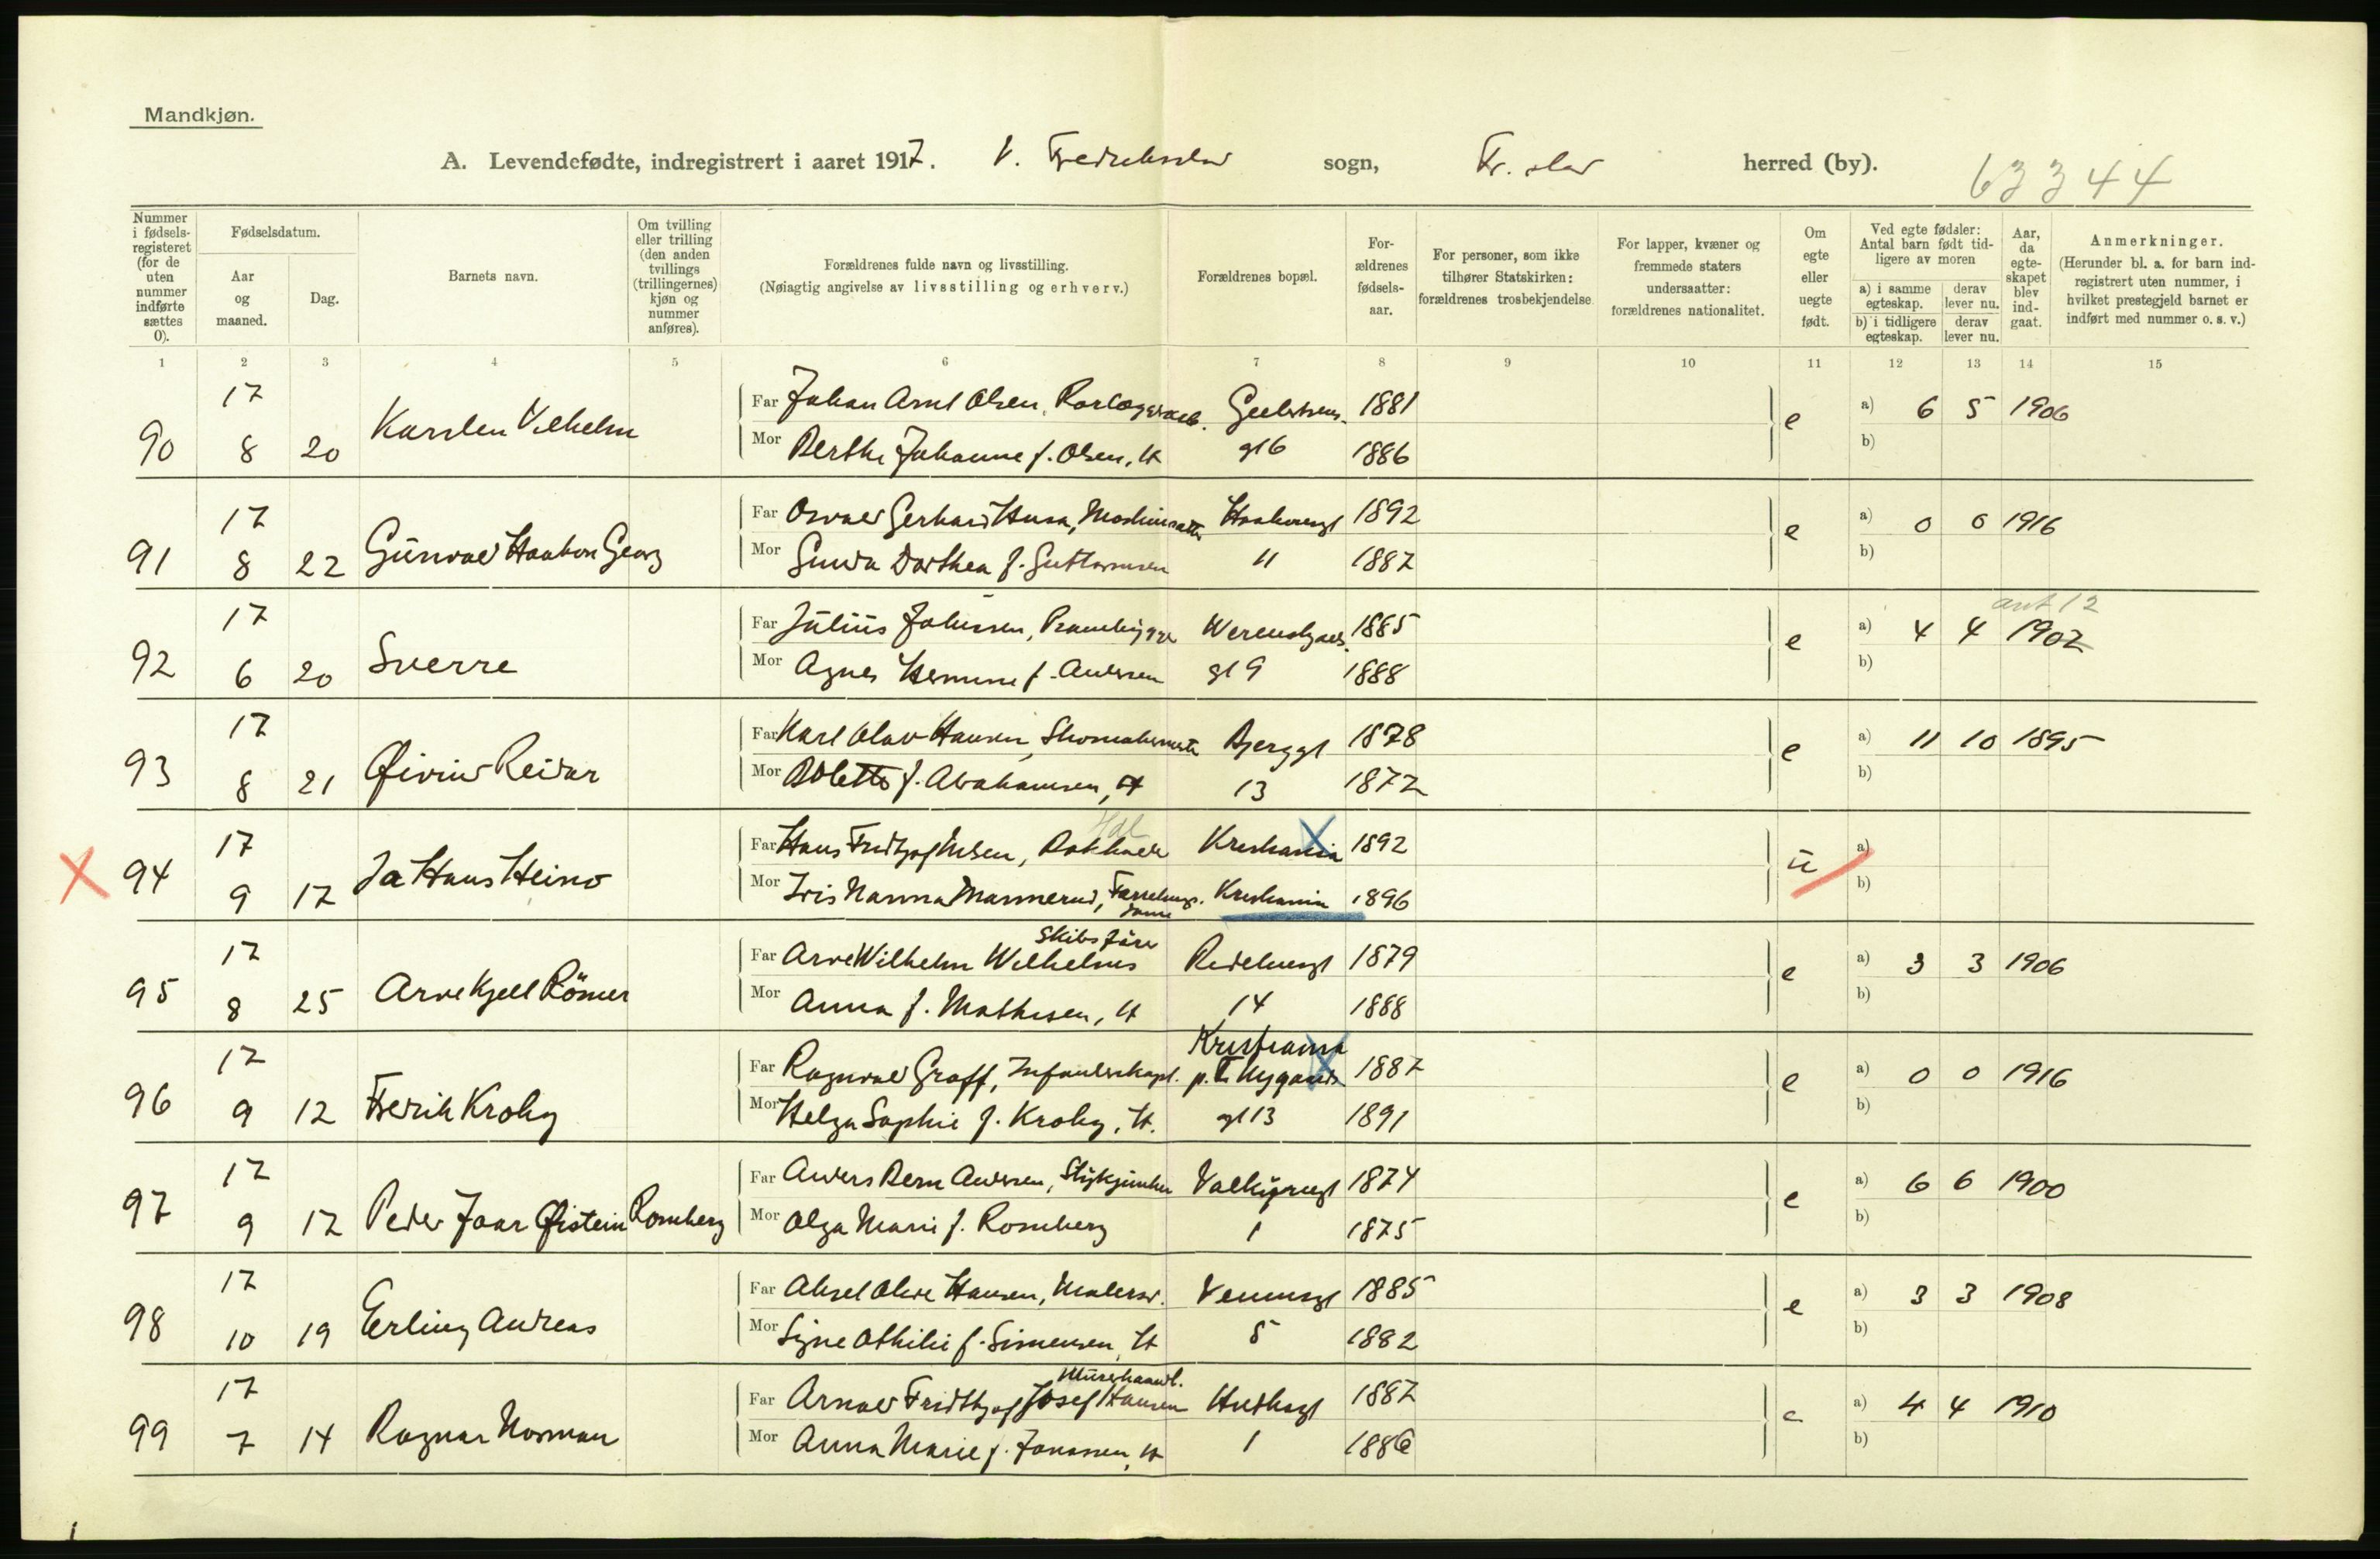 Mandkjøn.
A. Levendefødte, indregistrert i aaret 1917. V. Fredrikstad sogn, Fr. stad herred (by).
63344
Nummer i fødselsregisteret (for de uten nummer indførte sættes 0).
Fødselsdatum.
Aar og maaned.
Dag.
Barnets navn.
Om tvilling eller trilling (den anden tvillings (trillingernes) kjøn og nummer anføres).
Forældrenes fulde navn og livsstilling. (Nøiagtig angivelse av livsstilling og erhverv.)
Forældrenes bopæl.
Forældrenes fødselsaar.
For personer, som ikke tilhører Statskirken: forældrenes trosbekjendelse.
For lapper, kvæner og fremmede staters undersaatter: forældrenes nationalitet.
Om egte eller uegte født.
Ved egte fødsler: Antal barn født tidligere av moren
a) i samme egteskap. derav lever nu.
b) i tidligere egteskap. derav lever nu.
Aar, da egteskapet blev indgaat.
Anmerkninger. (Herunder bl. a. for barn indregistrert uten nummer, i hvilket prestegjeld barnet er indført med nummer o. s. v.)
1 2 3 4 5 6 7 8 9 10 11 12 13 14 15
17 Far Johan Olsen, 1881 e a) 6 5 1906
90 8 20 Karsten Vilhelm Mor Berthe Johanne f. Olsen, H gt 6 1886 b)
17 Far Osvald Gerhard Husa, Haakonsgt 1892 e a) 0 0 1916
91 8 22 Gunvald Haakon Georg Mor Gunda Dorthea f. Guttormsen 11 1887 b)
17 Far Julius Johnsen, 1885 e a) 4 4 1902 ant 12
92 6 20 Sverre Mor Agnes f. Andersen gt 9 1888 b)
17 Far Karl Olav Hansen, Skomakermester Bjerggt 1878 e a) 11 10 1895
93 8 21 Øivind Reidar Mor Bolette f. Abrahamsen, H 13 1872 b)
17 Far Hans Fridtjof Nilsen, Kristiania 1892 u a)
X 94 9 17 Ja Hans Heino Mor Iris Nanna Mannerud, Kristiania 1896 b)
17 Skibsfører
Far Arve Wilhelm Wilhelms 1879 e a) 3 3 1906
95 8 25 Arve Kjell Römer Mor Anna f. Mathisen, H 14 1888 b)
Kristiania
17 Far Ragnvald Graff, p.t. Nygaards 1887 e a) 0 0 1916
96 9 12 Fredrik Krohg Mor Helga Sophie f. Krohg, H. gt 13 1891 b)
17 Far Anders Bern Andersen, 1874 e a) 6 6 1900
97 9 17 Peder Joar Øistein Romberg Mor Olga Marie f. Romberg 1 1875 b)
17 Far Aksel Olave Hansen, Malersv. Venusgt 1885 e a) 3 3 1908
98 10 19 Erling Andreas Mor Signe Othilie f. Simensen, H 5 1882 b)
17 Murerhaandl.
Far Arnold Fridthjof Josef Hansen 1887 e a) 4 4 1910
99 7 14 Ragnar Norman Mor Anna Marie f. Jonassen, H 1 1886 b)